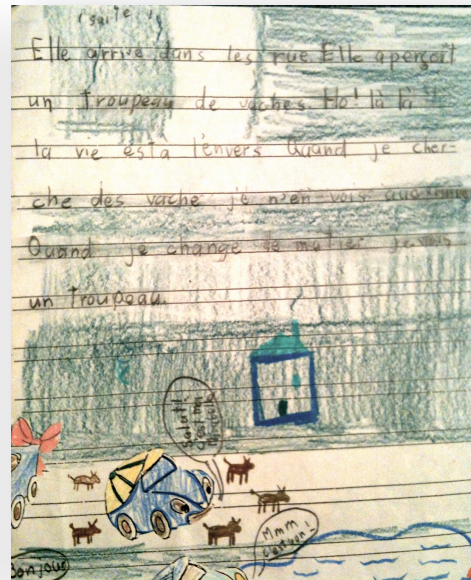 (suite)
Elle arrive dans les rue. Elle aperçoit
un troupeau de vaches. Ho! là là!
la vie est a l'envers Quand je cher-
che des vache je n'en vois aucunne
Quand je change de métier je vois
un troupeau.
Salut!
Mmm
c'est bon!
Bonjour